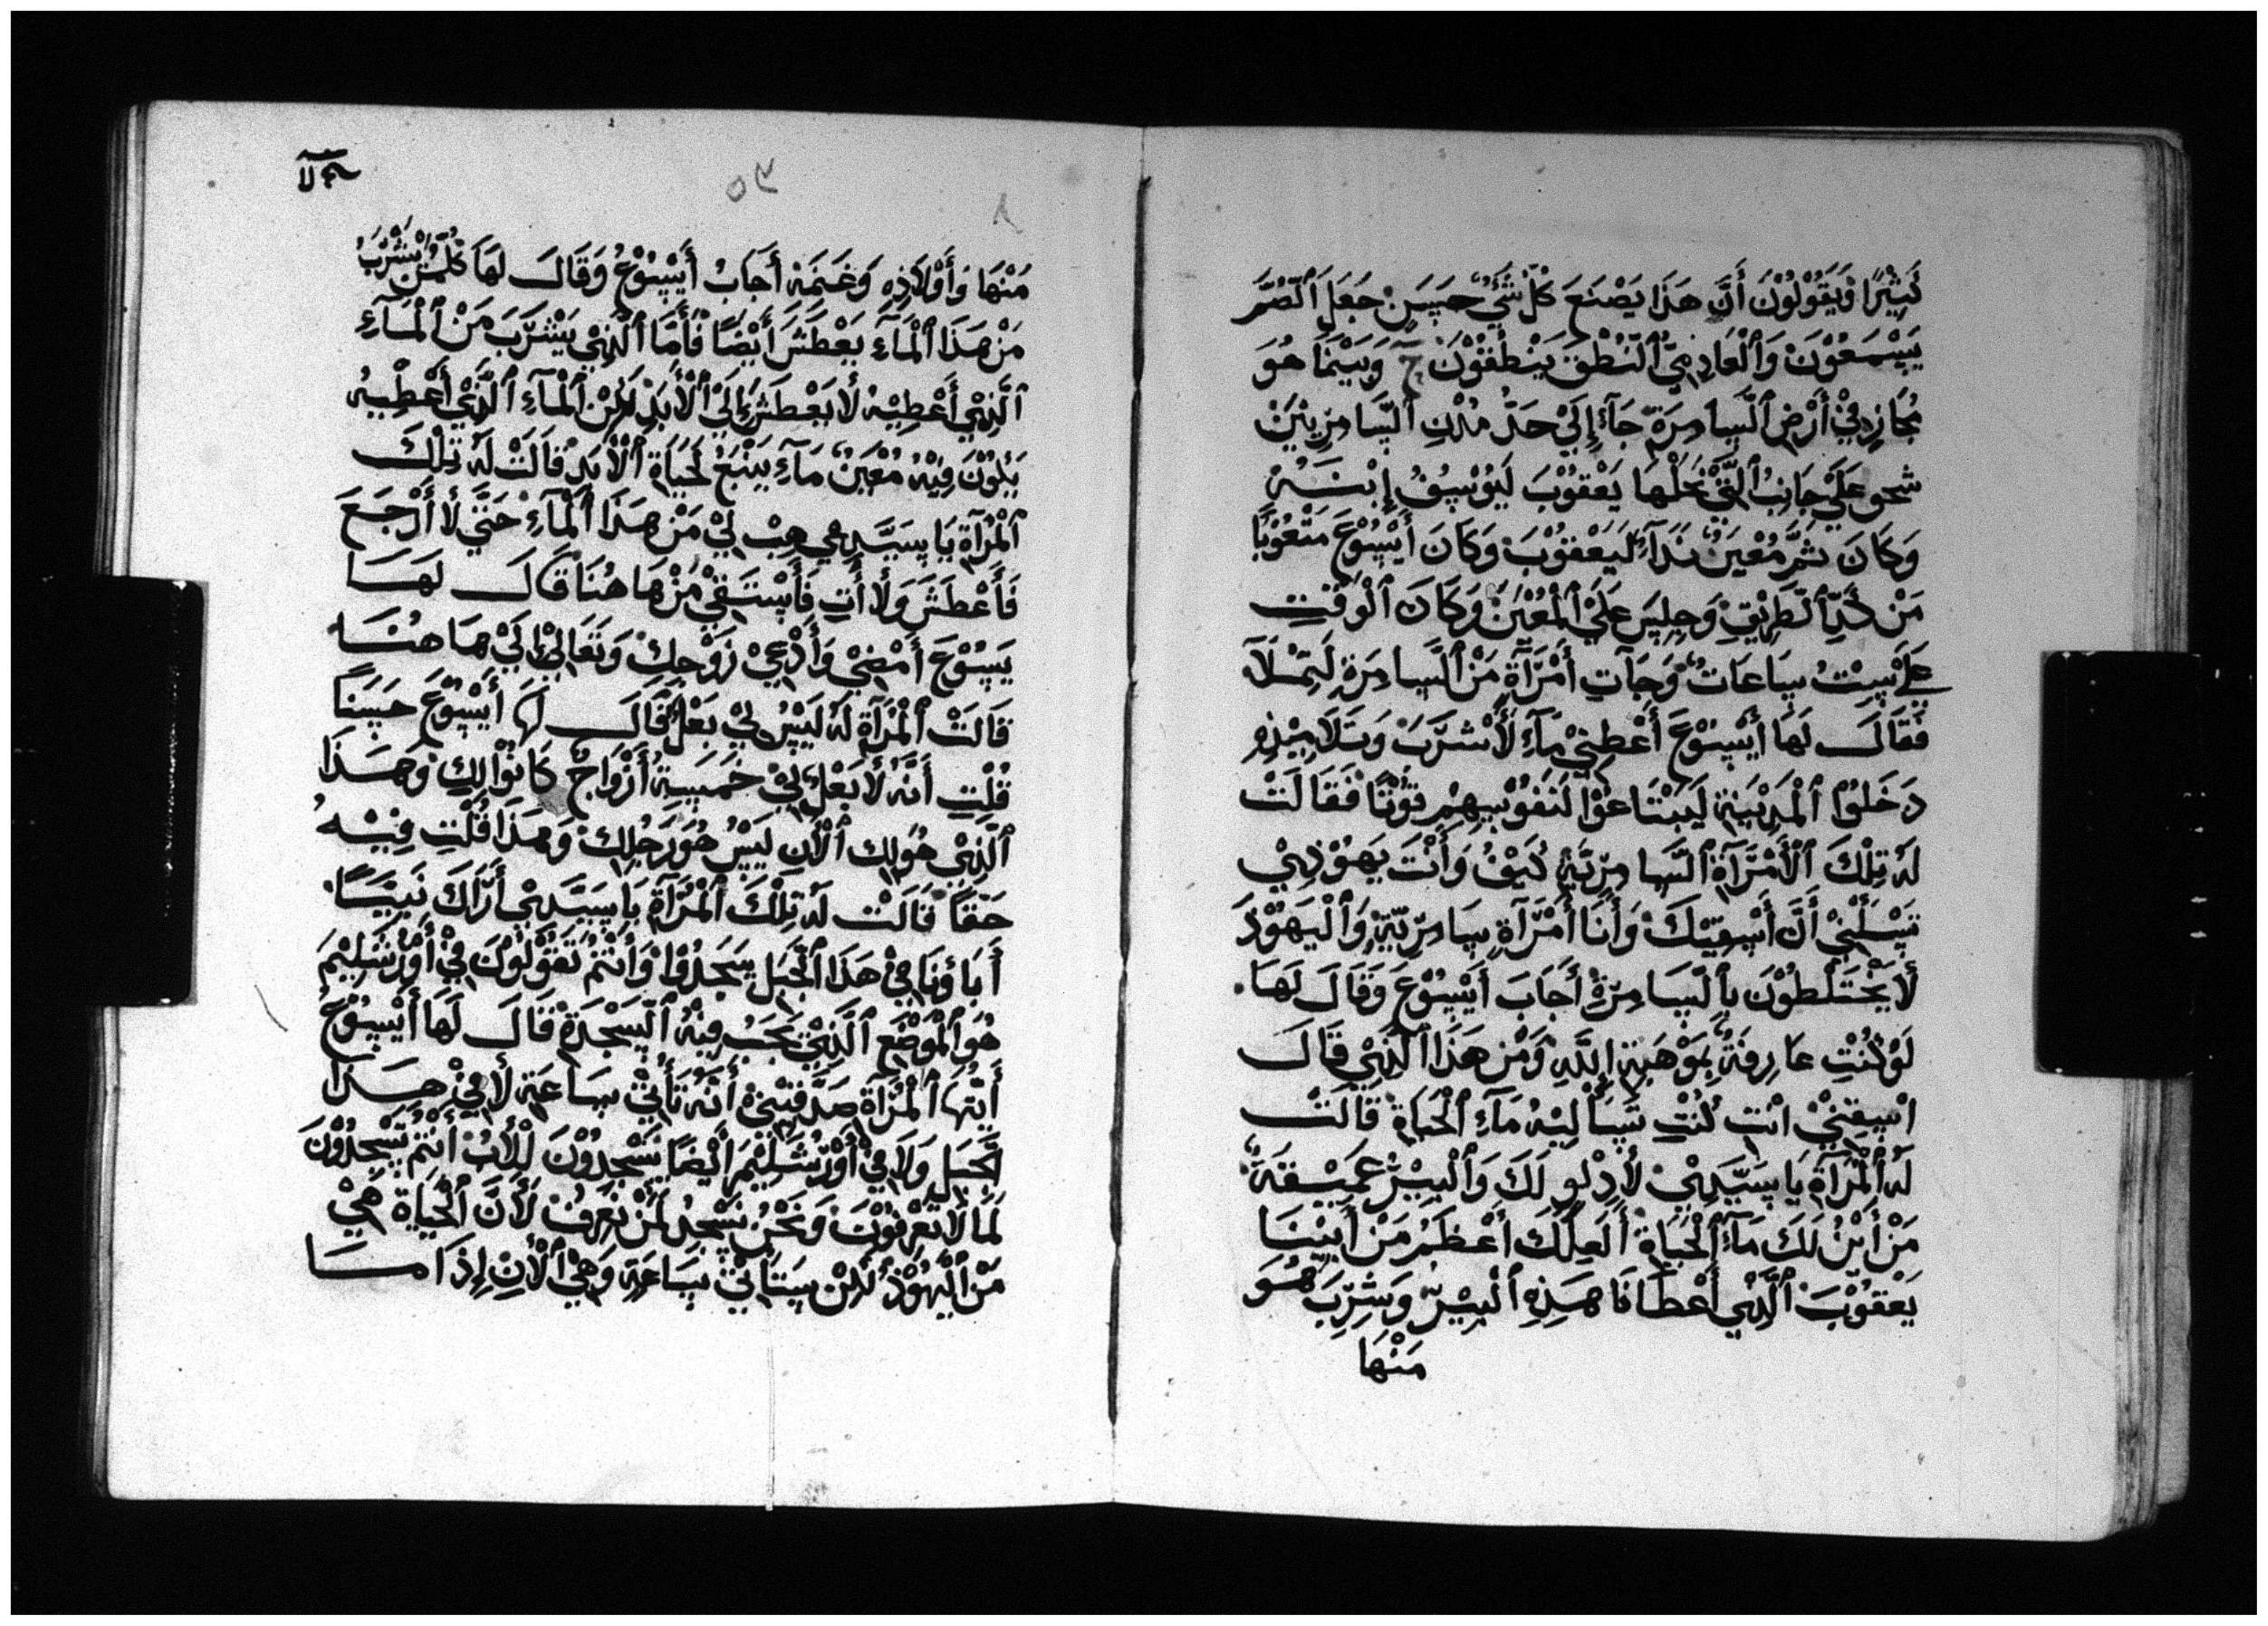 كَثِيْرًا وَيَقُوْلُوْنَ أَنَّ هَذَا يَصْنَعَ كُلّ شَئٍ حَسَنْ جَعَلَ ٱلصُّمَّ
يَسْمَعُوْنَ وَٱلْعَادِمِيْ ٱلنُّطْقْ يَنْطَقُوْنْ وَبَيْنَمَا هُوَ
مُجَازِ فِيْ أَرْضِ ٱلسَّامِرَةْ جَآءَ إِلَيْ حَدُّ مُلْكِ ٱلسَّامِرِيِيْنَ
شحو عَلَيْ جَانِبُ ٱلتَّيْ نَحَلْهَا يَعْقُوْبَ لَيُوْسِفُ إِبْنَهُ
وَكَانَ ثَمَّ مُعْيَنُ مَآءُ لَيَعْقُوْبَ وَكَانَ أَيْسُوْعَ مَتْعُوْبًا
مَنْ كَدِّ ٱلطَرِيْقِ وَجِلِسَ عَلَيْ ٱلْمُعْيَنْ وَكَانَ ٱلْوَقْتِ
عَلَيْ سِتْ سَاعَاتْ وَجَآتِ أَمْرَآةٌ مَنْ ٱلسَّامِرَةِ لَتَمْلَآ
فَقَالَ لَهَا أَيْسُوْعَ أَعْطِيْنِيْ مَآءِ لَأَشْرَبَ وَتَلَامِيْذِهِ
دَخَلُوْا ٱلْمَدِيْنَةِ لَيَبْتَاعُوْا لَنَفُوْسِهِمْ قُوْتًا فَقَالَتْ
لَهُ تِلْكَ ٱلْأَمْرَآةْ ٱلسَّامِرِّيَةْ كَيْفُ وَأَنْتَ يَهُوْدِيْ
تَسْلَنِيْ أَنَّ أَسْقِيْكَ وَأَنَا أَمْرَآةٍ سَامِرِّيَةٍ وَٱلْيَهُوْدَ
لَأ يَخْتَلْطُوْنَ بِٱلْسَامِرَةْ أَجَابَ أَيْسُوْعَ وَقَالَ لَهَا
لَوْ كُنْتِ عَارِفَةٌ بِمَوْهَبَةِ اللَّهِ وَمْنْ هَذَا ٱلَّذِيْ قَالَ
اسْقِنِيْ انْتِ كُنْتِ تَسْأَلِيْهُ مَآءِ ٱلْحَيَاةْ قَالَتْ
لَهُ ٱلْمَرْآةِ يَا سَيِّدِيْ لَأ دَلْوِ لَكَ وَٱلْبِيْرُ عَمِيْقَةٌ
مَنْ أَيْنُ لَكَ مَآءِ ٱلْحَيَاةْ أَلَعَلَّكَ أَعْظَمُ مَنْ أَبِيْنَا
يَعْقُوْبَ ٱلَّذِيْ أَعْطَانَا هَذِهِ ٱلْبِيْرْ وَشَرِبَ هُوَ
مَنْهَا
مَنْهَا وَأَوْلَادِهِ وَغَنَمَهْ أَجَابُ أَيْسُوْعُ وَقَالَ لَهَا كُلُّمَنْ يَشْرَبُ
مَنْ هَذَا ٱلْمَآءِ يَعْطَشَ أَيْضًا فَأَمَّا ٱلَّذِيْ يَشْرَبَ مَنْ ٱلْمَآءِ
ٱلَّذِيْ أَعْطِيْهُ لَأ يَعْطَشَ إِلَيْ ٱلْأَبَدْ لَكِنْ ٱلْمَآءِ ٱلَّذَيْ أَعْطِيْهُ
يَكُوْنَ فِيْهُ مُعْيَنْ مَآءِ يَنْبَعُ لَحَيَاةِ ٱلْأَبَدْ قَالَتْ لَهُ تِلْكَ
ٱلْمَرْآةِ يَا سَيِّدِيْ هِبْ لِيْ مَنْ هَذَا ٱلْمَآءِ حَتَّيْ لَأ أَرْجَعَ
فَأَعْطَشَ وَلَأ أتِ فَأَسْتَقِيْ مَنْ هَاهُنَا قَالَ لَهَا
يَسُوْعَ أَمْضِيْ وَأَدْعِيْ زَوْجِكْ وَتَعَالِيْ إِلَيْ هَاهُنَا
قَالَتْ ٱلْمَرْآةِ لَهُ لَيْسُ لِيْ بَعْلٌ قَالَ لَهَا أَيْسُوْعَ حَسَنًا
قُلْتِ أَنَّهُ لَأ بَعْلُ لِيْ خَمْسَةُ أَزْوَاجٌ كَانُوْا لِكِ وَهَذَا
ٱلَّذِيْ هُوَلِكِ ٱلْأَنِ لَيْسُ هُوَ رَجُلِكْ وَهَذَا قُلْتِ فِيْهُ
حَقًا قَالَتْ لَهُ تِلْكَ ٱلْمَرْآةِ يَا سَيِّدِيْ أَرَّاكَ نَبِيًا
أَبَاؤنَا فِيْ هَذَا ٱلْجَبَلِ سَجَدُوْا وَأَنْتُمْ تَقُوْلُوْنَ فِيْ أُوْرْشَلِيْمَ
هُوَ ٱلْمَوْضَعِ ٱلَّذِيْ يَجَبُ فِيْهُ ٱلسَجْدَةْ قَالَ لَهَا أَيْسُوْعُ
أَيَّتُهَا ٱلْمَرْآةِ صَدَّقِيْنِيْ أَنَّهُ تَأْتِيْ سَاعَةِ لَأ فِيْ هَذَا
ٱلْجَبَلِ وَلَأ فِيْ أُوْرْشَلِيْمَ أَيْضًا يَسْجَدُوْنَ لِلْأَبْ أَنْتُمْ تَسْجِدُوْنَ
لَمَّا لَأ تَعْرِفُوْنَ وَنَحْنُ نَسْجِدُ لَمَنْ نَعْرِفُ لَأَنَّ ٱلْحَيَاةَ هِيْ
مَنْ ٱلْيَهُوْدْ لَكِنْ سَتَأْتِيْ سَاعَةِ وَهِيْ ٱلْأَنِ إِذَا مَا